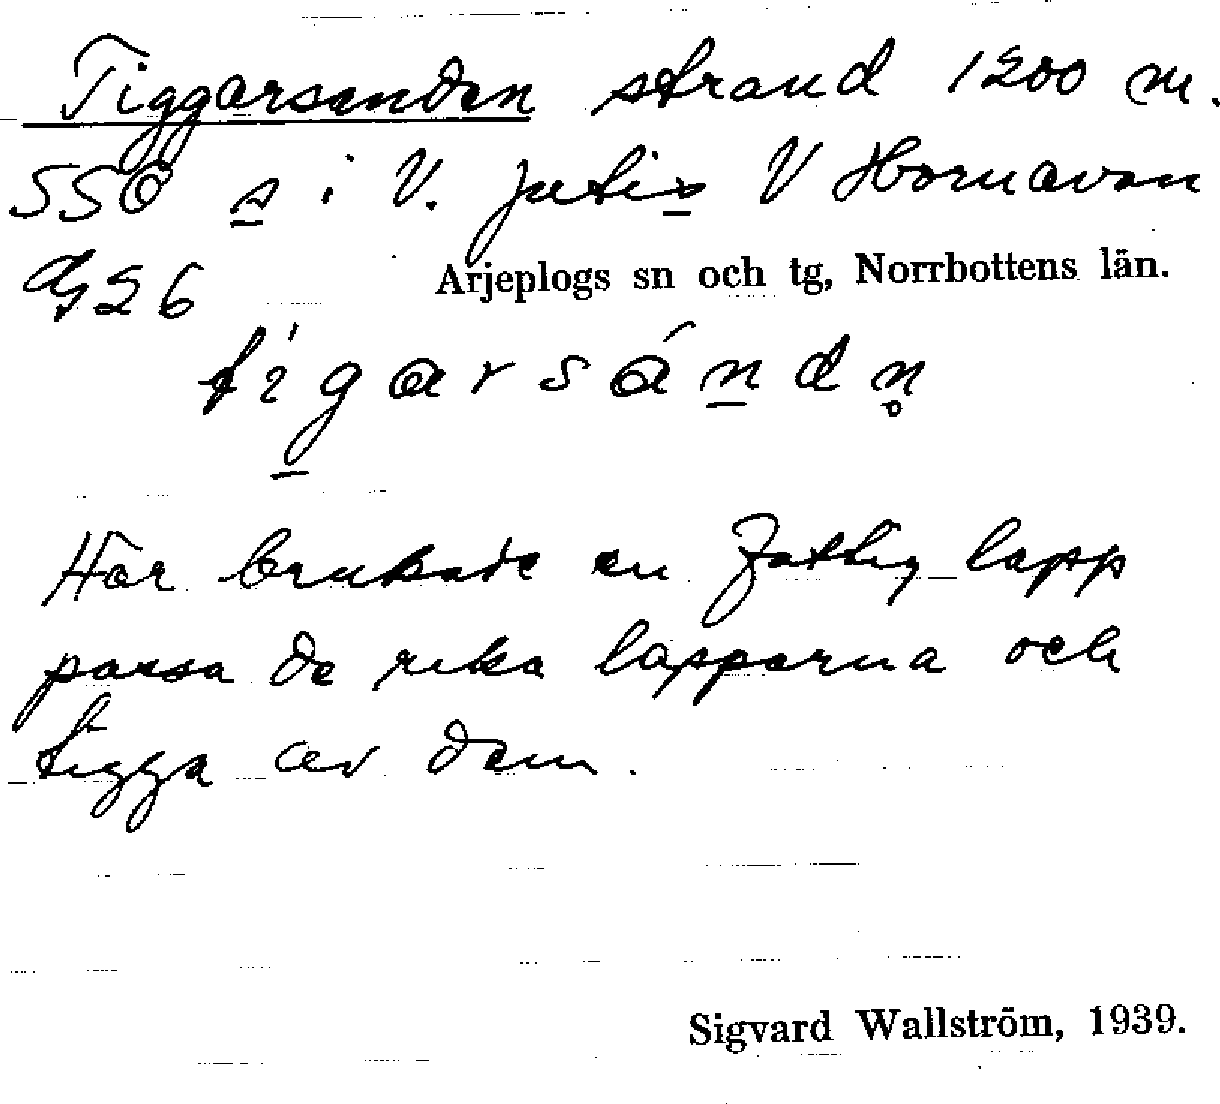 Tiggarsanden strand 1200 m.
SSO s i V. Jutis V Hornavan
26 Arjeplogs sn och tg, Norrbottens län.
tígarsándn̥
Här brukade en fattig lapp
passa de rika lapparna och
tigga av dem.
Sigvard Wallström, 1939.